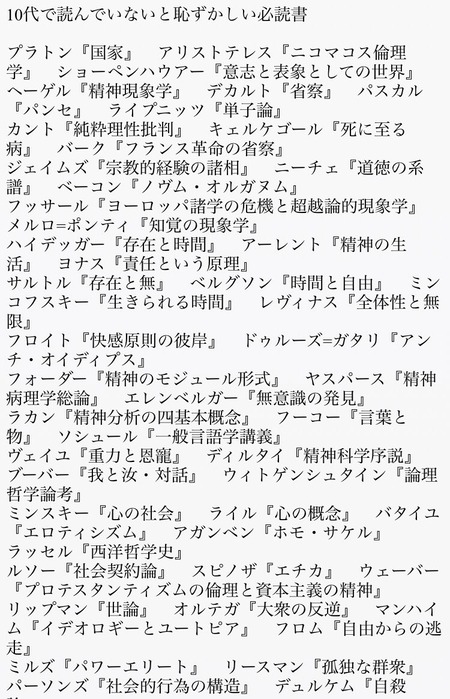 10代で読んでいないと恥ずかしい必読書
プラトン『国家』　アリストテレス『ニコマコス倫理
学』　ショーペンハウアー『意志と表象としての世界』
ヘーゲル『精神現象学』　デカルト『省察』　パスカル
『パンセ』　ライプニッツ『単子論』
カント『純粋理性批判』　キェルケゴール『死に至る
病』　バーク『フランス革命の省察』
ジェイムズ『宗教的経験の諸相』　ニーチェ『道徳の系
譜』　ベーコン『ノヴム・オルガヌム』
フッサール『ヨーロッパ諸学の危機と超越論的現象学』
メルロ=ポンティ『知覚の現象学』
ハイデッガー『存在と時間』　アーレント『精神の生
活』　ヨナス『責任という原理』
サルトル『存在と無』　ベルグソン『時間と自由』　ミン
コフスキー『生きられる時間』　レヴィナス『全体性と無
限』
フロイト『快感原則の彼岸』　ドゥルーズ=ガタリ『アン
チ・オイディプス』
フォーダー『精神のモジュール形式』　ヤスパース『精神
病理学総論』　エレンベルガー『無意識の発見』
ラカン『精神分析の四基本概念』　フーコー『言葉と
物』　ソシュール『一般言語学講義』
ヴェイユ『重力と恩寵』　ディルタイ『精神科学序説』
ブーバー『我と汝・対話』　ウィトゲンシュタイン『論理
哲学論考』
ミンスキー『心の社会』　ライル『心の概念』　バタイユ
『エロティシズム』　アガンベン『ホモ・サケル』
ラッセル『西洋哲学史』
ルソー『社会契約論』　スピノザ『エチカ』　ウェーバー
『プロテスタンティズムの倫理と資本主義の精神』
リップマン『世論』　オルテガ『大衆の反逆』　マンハイ
ム『イデオロギーとユートピア』　フロム『自由からの逃
走』
ミルズ『パワーエリート』　リースマン『孤独な群衆』
パーソンズ『社会的行為の構造』　デュルケム『自殺